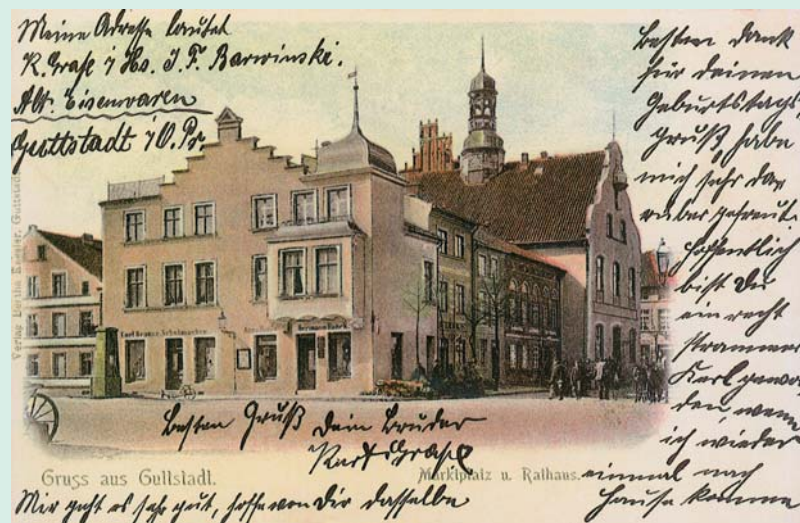 Meine Adresse lautet
K. Grafe i Hs. J. F. Barwinski.
Abt. Eisenwaren
Guttstadt i O. Pr.
besten Dank
für deinen
Geburtstags
gruß, habe
mich sehr da
rüber gefreut.
hoffentlich
bist Du
ein recht
strammer
Karl gewor
den, wenn
ich wieder
einmal nach
Hause komme
Verlag Bertha Kessler, Guttstadt
Karl Krause, Schuhmacher
Hermann
besten Gruß Dein Bruder
Karl Grafe
Gruss aus Guttstadt.
Marktplatz u. Rathaus.
Mir geht es sehr gut, hoffe von Dir dasselbe